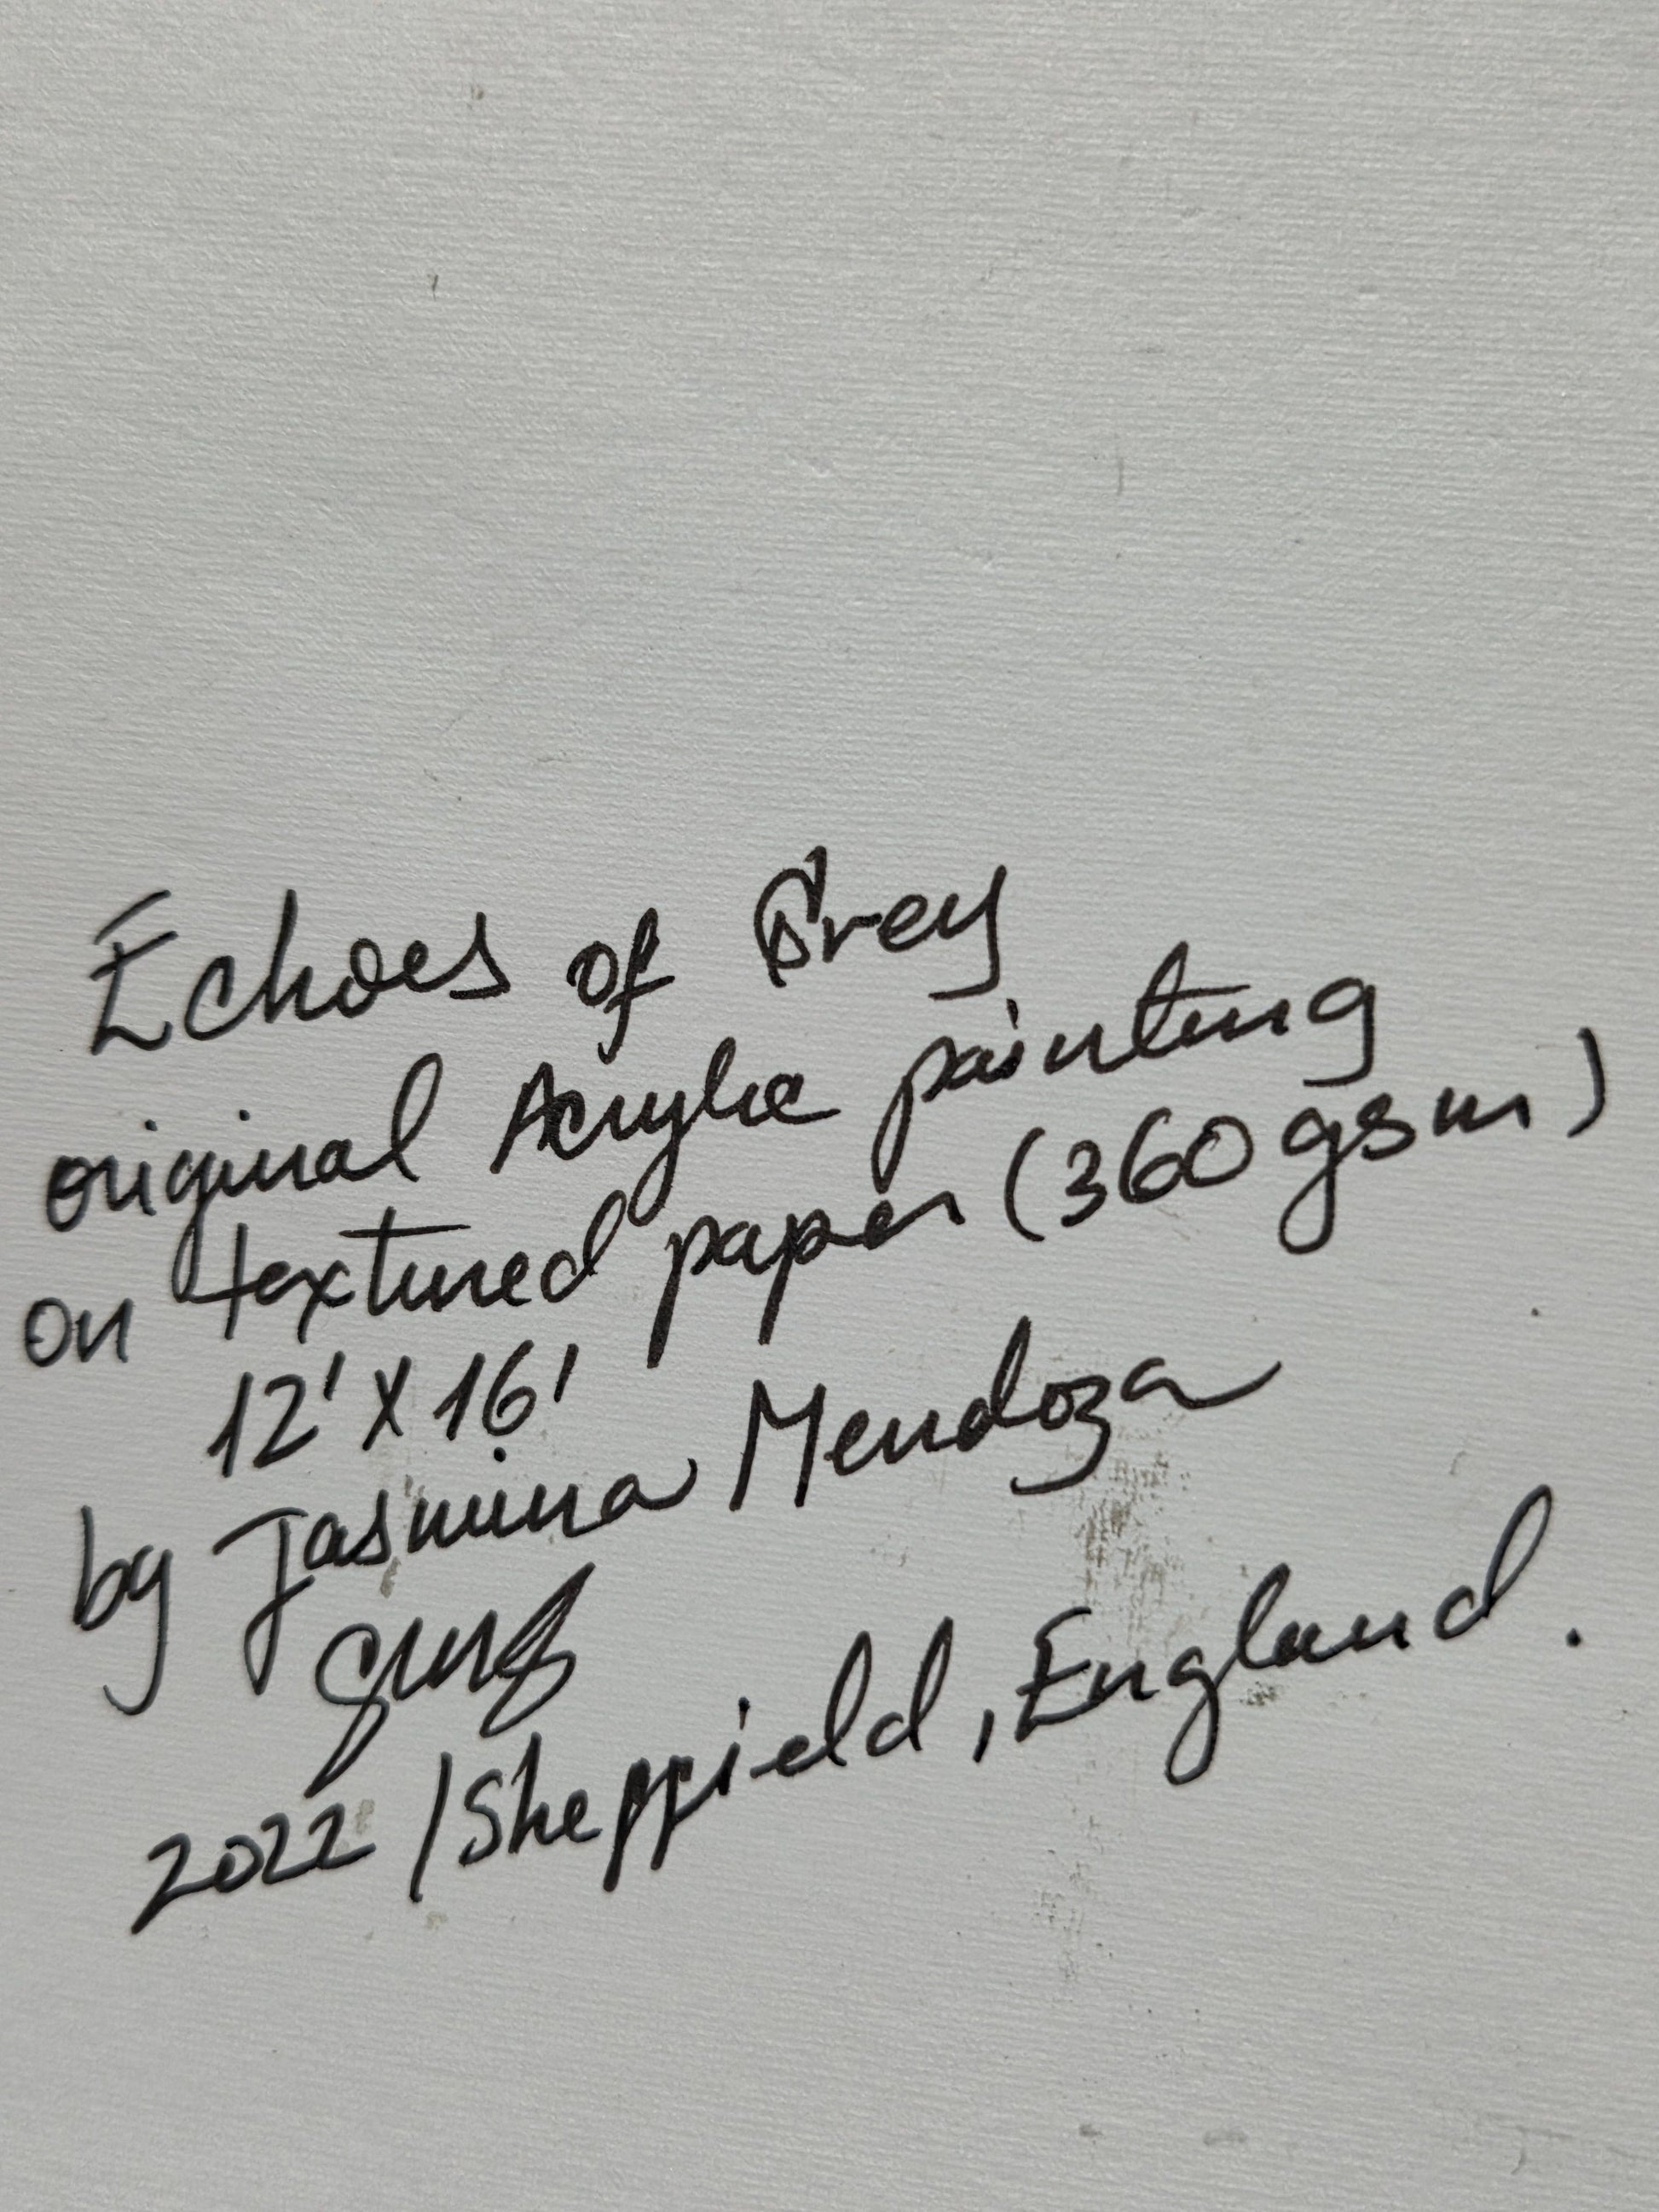 Echoes of Grey
original Acrylic painting
on textured paper (360 gsm)
12' x 16'
by Jasmina Mendoza
2022 / Sheffield, England.